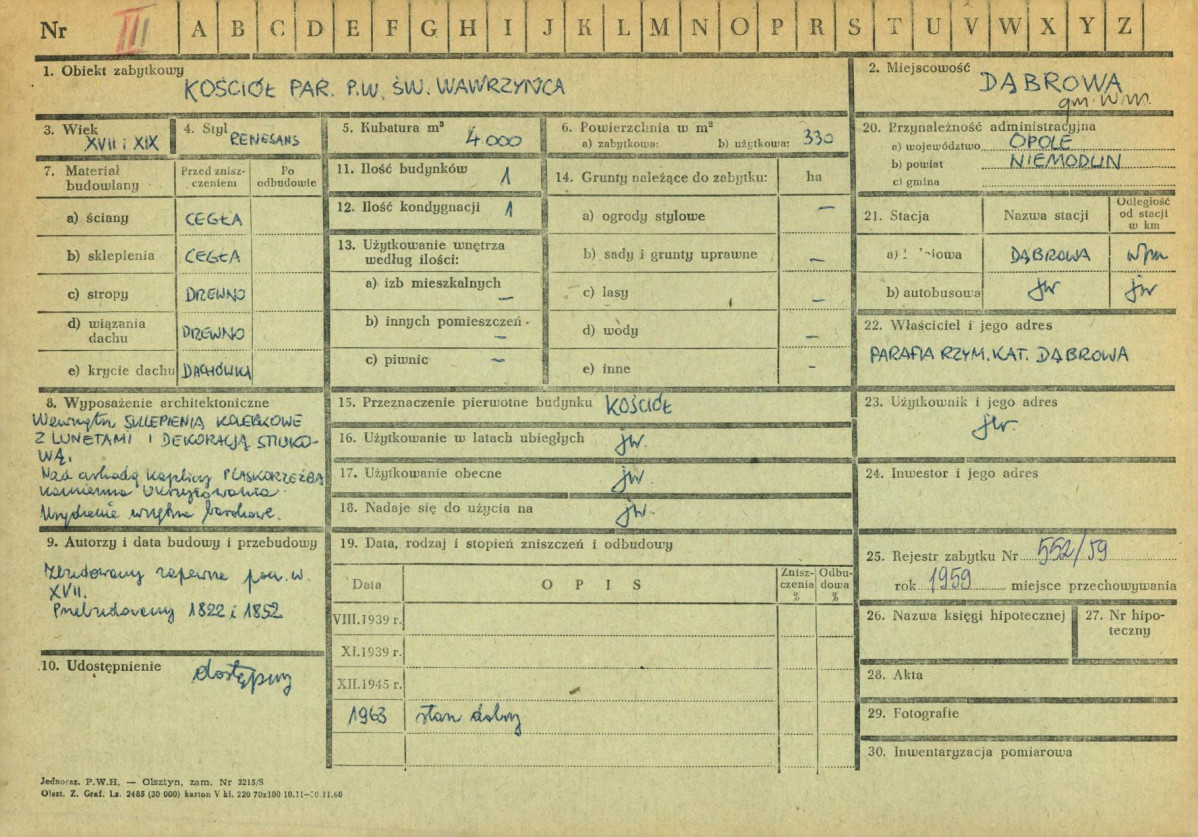 Nr III A B C D E F G H I J K L M N O P R S T U V W X Y Z
1. Obiekt zabytkowy
KOŚCIÓŁ PAR. P.W. ŚW. WAWRZYŃCA
2. Miejscowość
DĄBROWA
gm. w.m.
3. Wiek
XVII i XIX
4. Styl
RENESANS
5. Kubatura m³
4.000
6. Powierzchnia w m²
a) zabytkowa: b) użytkowa: 330
20. Przynależność administracyjna
a) województwo OPOLE
b) powiat NIEMODLIN
c) gmina
7. Materiał budowlany
Przed zniszczeniem
Po odbudowie
a) ściany CEGŁA
b) sklepienia CEGŁA
c) stropy DREWNO
d) wiązania dachu DREWNO
e) krycie dachu DACHÓWKA
11. Ilość budynków 1
12. Ilość kondygnacji 1
13. Użytkowanie wnętrza według ilości:
a) izb mieszkalnych —
b) innych pomieszczeń - —
c) piwnic —
14. Grunty należące do zabytku: ha
a) ogrody stylowe —
b) sady i grunty uprawne —
c) lasy —
d) wody —
e) inne -
21. Stacja
Nazwa stacji
Odległość od stacji w km
a) DĄBROWA w/m
b) autobusowa jw jw
22. Właściciel i jego adres
PARAFIA RZYM. KAT. DĄBROWA
8. Wyposażenie architektoniczne
Wewnątrz SKLEPIENIA KOLEBKOWE
Z LUNETAMI I DEKORACJĄ STIUKO-
WĄ.
Nad arkadą kaplicy PŁASKORZEŹBA
kamienna Ukrzyżowania.
Urządzenie wnętrza barokowe.
15. Przeznaczenie pierwotne budynku KOŚCIÓŁ
16. Użytkowanie w latach ubiegłych jw.
17. Użytkowanie obecne jw
18. Nadaje się do użycia na jw.
23. Użytkownik i jego adres
jw.
24. Inwestor i jego adres
9. Autorzy i data budowy i przebudowy
Zbudowany zapewne pocz. w.
XVII.
Przebudowany 1822 i 1852
10. Udostępnienie
dostępny
19. Data, rodzaj i stopień zniszczeń i odbudowy
Data
O P I S
Zniszczenia %
Odbudowa %
VIII.1939 r.
XI.1939 r.
XII.1945 r.
1963 stan dobry
25. Rejestr zabytku Nr 552/59
rok 1959 miejsce przechowywania
26. Nazwa księgi hipotecznej
27. Nr hipoteczny
28. Akta
29. Fotografie
30. Inwentaryzacja pomiarowa
Jednoraz. P.W.H. — Olsztyn, zam. Nr 3215/S
Olszt. Z. Graf. Lz. 2485 (30 000) karton V kl. 220 70x100 10.11—30.11.60